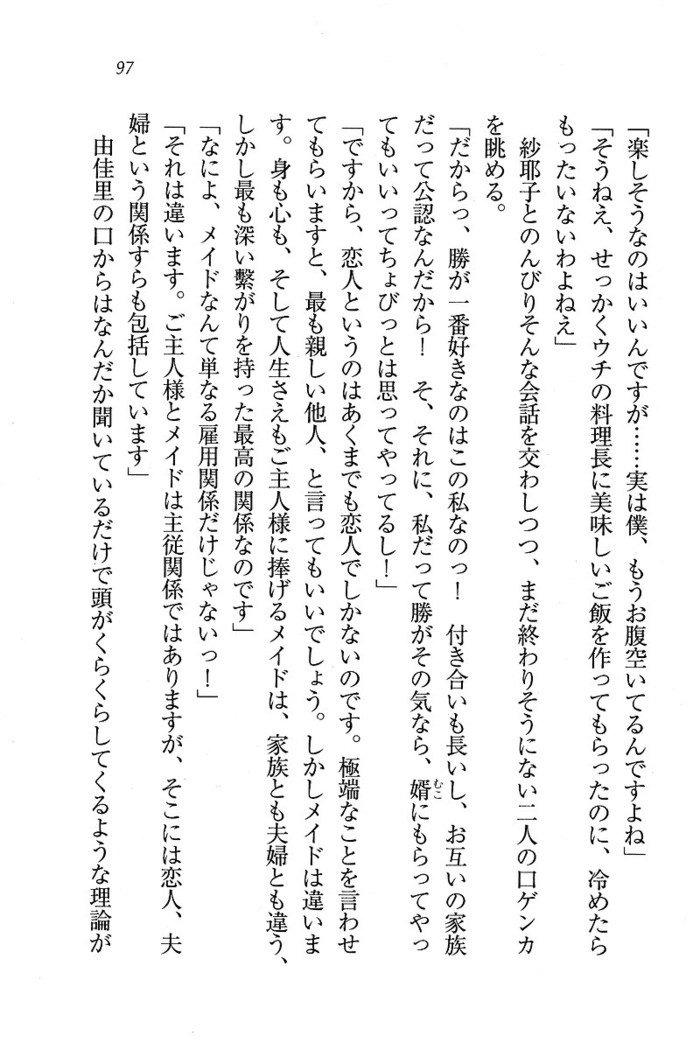 97
「楽しそうなのはいいんですが……実は僕、もうお腹空いてるんですよね」
「そうねえ、せっかくウチの料理長に美味しいご飯を作ってもらったのに、冷めたら
もったいないわよねえ」
紗耶子とのんびりそんな会話を交わしつつ、まだ終わりそうにない二人の口ゲンカ
を眺める。
「だからっ、勝が一番好きなのはこの私なのっ！　付き合いも長いし、お互いの家族
だって公認なんだから！　そ、それに、私だって勝がその気なら、婿にもらってやっ
てもいいってちょびっとは思ってやってるし！」
「ですから、恋人というのはあくまでも恋人でしかないのです。極端なことを言わせ
てもらいますと、最も親しい他人、と言ってもいいでしょう。しかしメイドは違いま
す。身も心も、そして人生さえもご主人様に捧げるメイドは、家族とも夫婦とも違う、
しかし最も深い繋がりを持った最高の関係なのです」
「なによ、メイドなんて単なる雇用関係だけじゃないっ！」
「それは違います。ご主人様とメイドは主従関係ではありますが、そこには恋人、夫
婦という関係すらも包括しています」
由佳里の口からはなんだか聞いているだけで頭がくらくらしてくるような理論が
むこ